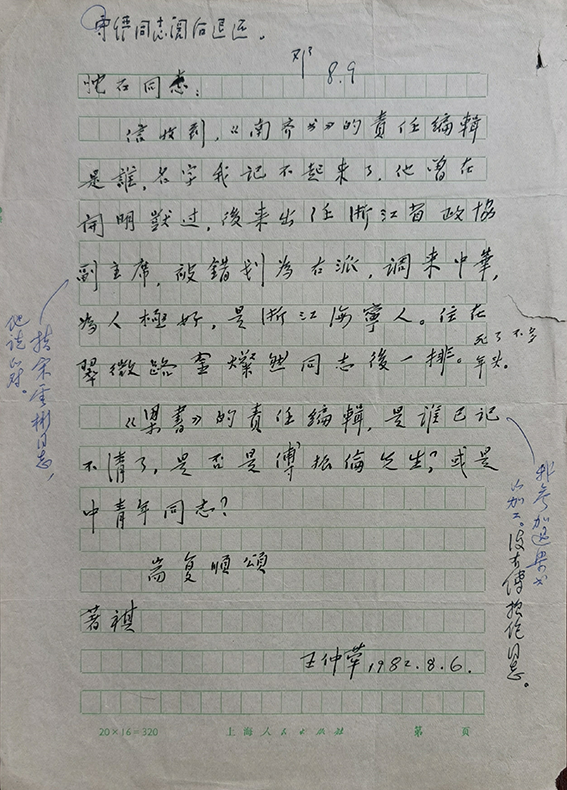 守俨同志阅后退还。
邓
8.9
忱石同志：
信收到，《南齐书》的責任編輯
是誰，名字我记不起来了，他曾在
開明獃过，後来出任浙江省政協
副主席，被錯划為右派，調来中華，
為人極好，是浙江海寧人。住在
翠微路金燦然同志後一排。死了不少
年头。
《梁書》的責任編輯，是誰已记
不清了，是否是傅振倫先生？或是
中青年同志？
耑复順頌
著祺
王仲犖1982.8.6.
指宋雲彬同志，
他读
我参加过梁书
加工。没有傅振伦同志。
20×16=320
上海人民出版社
第 页